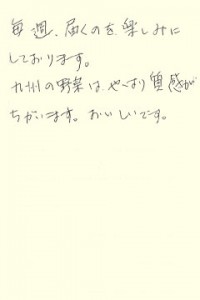 毎週、届くのを楽しみに
しております。
九州の野菜は、やはり質感が
ちがいます。おいしいです。